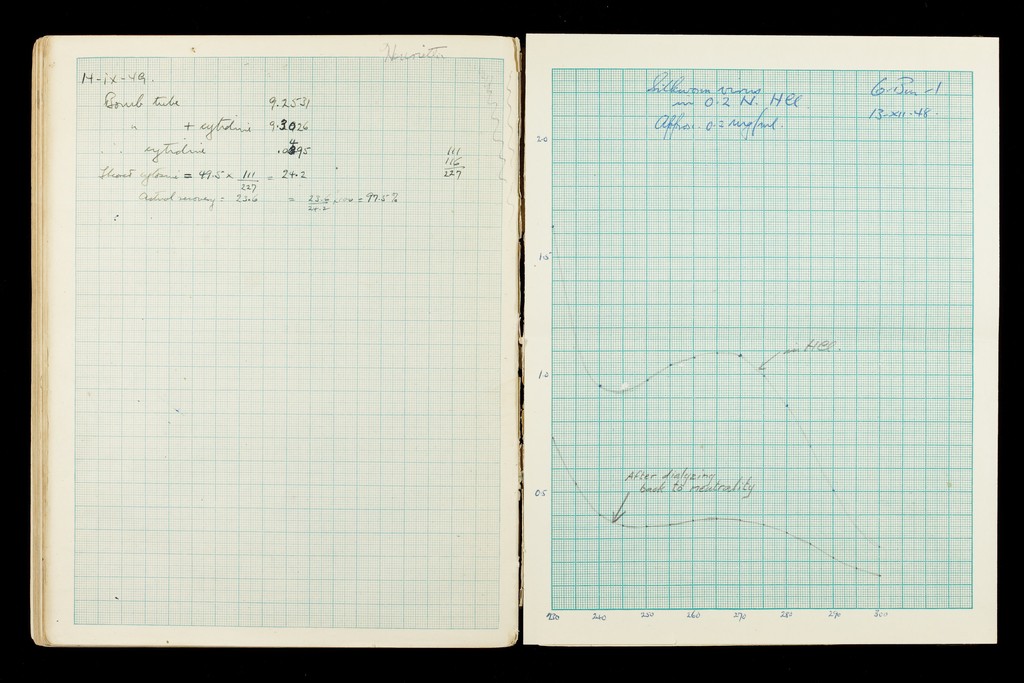 14-ix-49.
Bomb tube 9.2531
" + cytidine 9.3026
∴ cytidine .0495
111
116
227
= 49.5 x 111/227 = 24.2
Actual recovery = 23.6 = 23.6/24.2 x 100 = 97.5%
Silkworm virus
in 0.2 N. HCl
6-Bm-1
13-XII-48.
2.0
1.5
1.0
0.5
in HCl.
After dialyzing
back to neutrality
230 240 250 260 270 280 290 300